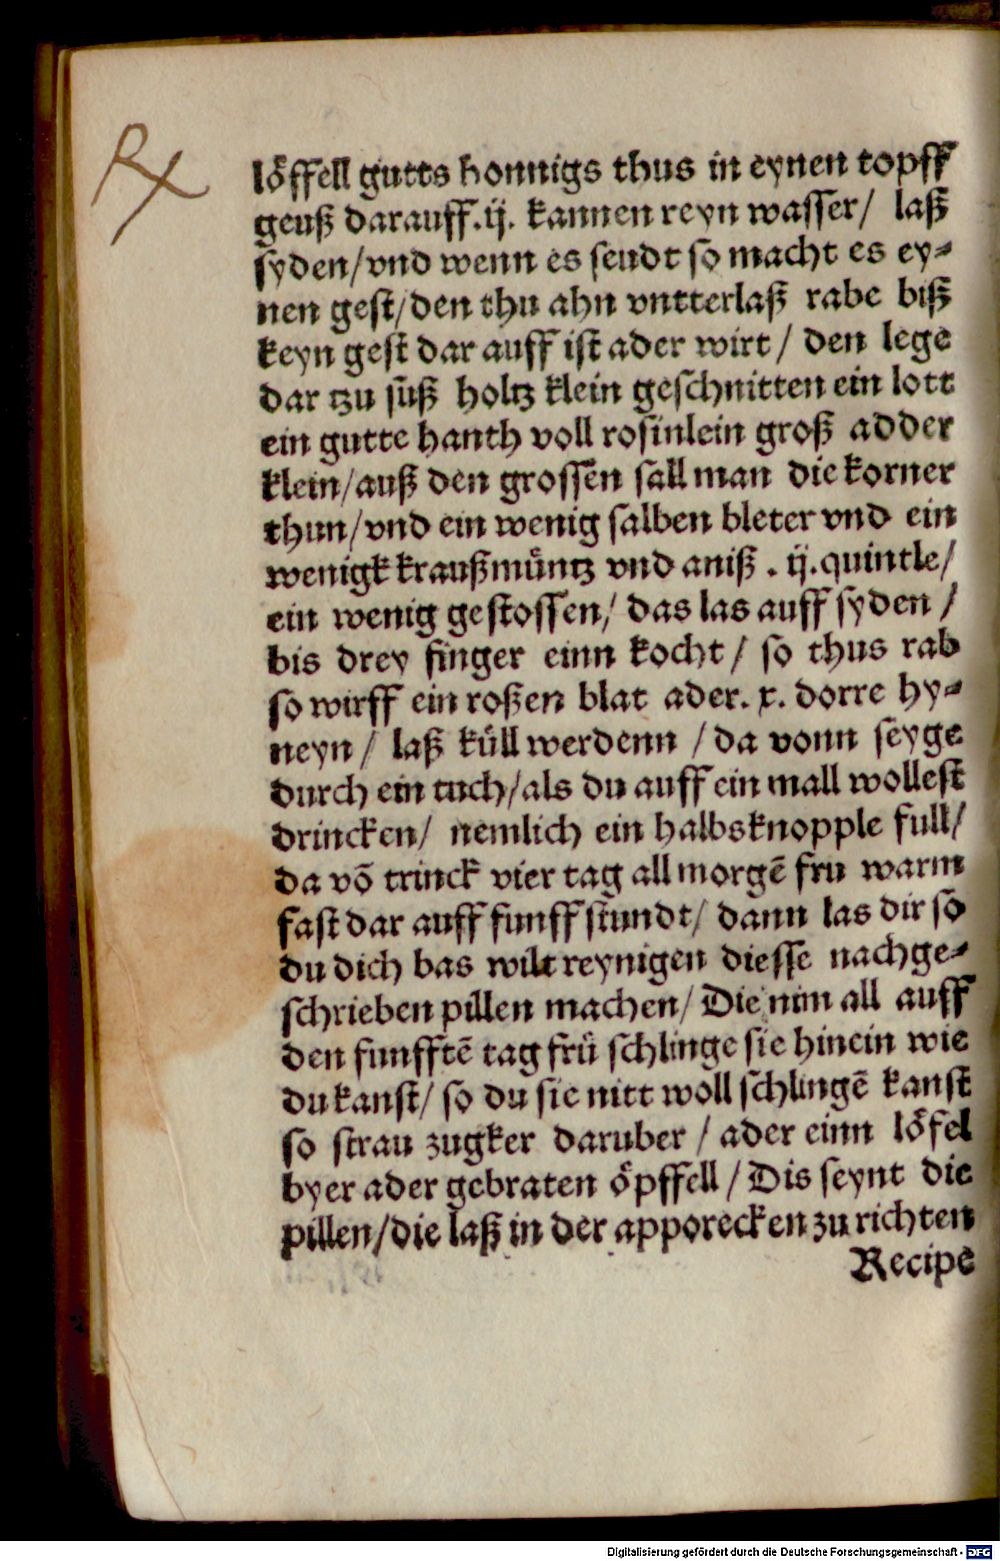 löffell gutts honnigs thus in eynen topff
geuß darauff.ij. kannen reyn wasser/ laß
syden/vnd wenn es seudt so macht es ey⸗
nen gest/den thu ahn vntterlaß rabe biß
keyn gest dar auff ist ader wirt/ den lege
dar tzu süß holtz klein geschnitten ein lott
ein gutte hanth voll rosinlein groß adder
klein/auß den grossen sall man die korner
thun/vnd ein wenig salben bleter vnd ein
wenigk kraußmüntz vnd aniß . ij.quintle/
ein wenig gestossen/ das las auff syden /
bis drey finger einn kocht/ so thus rab
so wirff ein roßen blat ader. x. dorre hy⸗
neyn/ laß küll werdenn /da vonn seyge
durch ein tuch/als du auff ein mall wollest
drincken/ nemlich ein halbsknopple full/
da võ trinck vier tag all morgẽ fru warm
fast dar auff funff stundt/ dann las dir so
du dich bas wilt reynigen diesse nachge⸗
schrieben pillen machen/ Die nim all auff
den funfftẽ tag frü schlinge sie hinein wie
du kanst/ so du sie nitt woll schlingẽ kanst
so strau zugker daruber / ader einn löfel
byer ader gebraten öpffell / Dis seynt die
pillen/die laß in der apporecken zu richten
Recipe
Digitalisierung gefördert durch die Deutsche Forschungsgemeinschaft - DFG